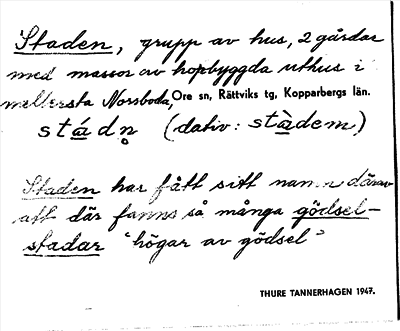 Staden, grupp av hus, 2 gårdar
med massor av hopbyggda uthus i
mellersta Norrboda, Ore sn, Rättviks tg, Kopparbergs län.
stádn̥ (dativ: stàdem)
Staden har fått sitt namn därav
att där fanns så många gödsel-
stadar "högar av gödsel"
THURE TANNERHAGEN 1947.